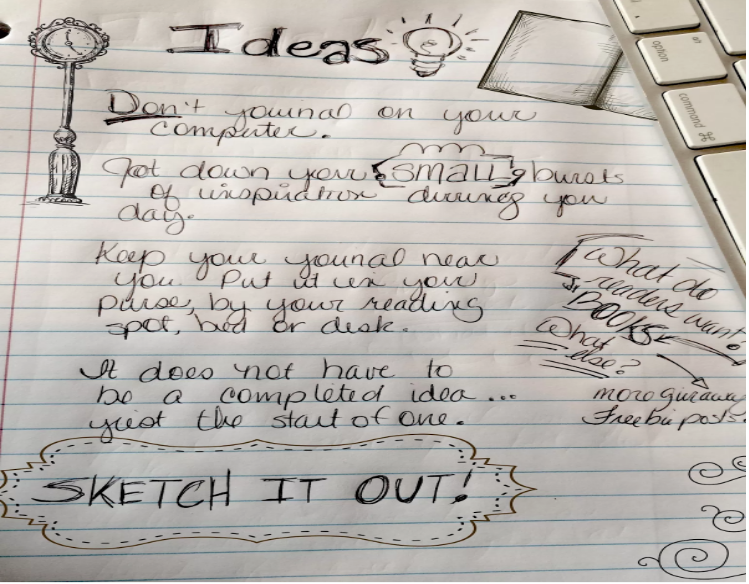 Ideas
Don't journal on your
computer.
Jot down your {small} bursts
of inspiration during you
day.
Keep your jounal near
you. Put it in your
purse, by your reading
spot, bed or desk.
It does not have to
be a completed idea...
just the start of one.
SKETCH IT OUT!
What do
readers want?
BOOKS
What
else?
more giveaway
Freebie posts
option
alt
command ⌘